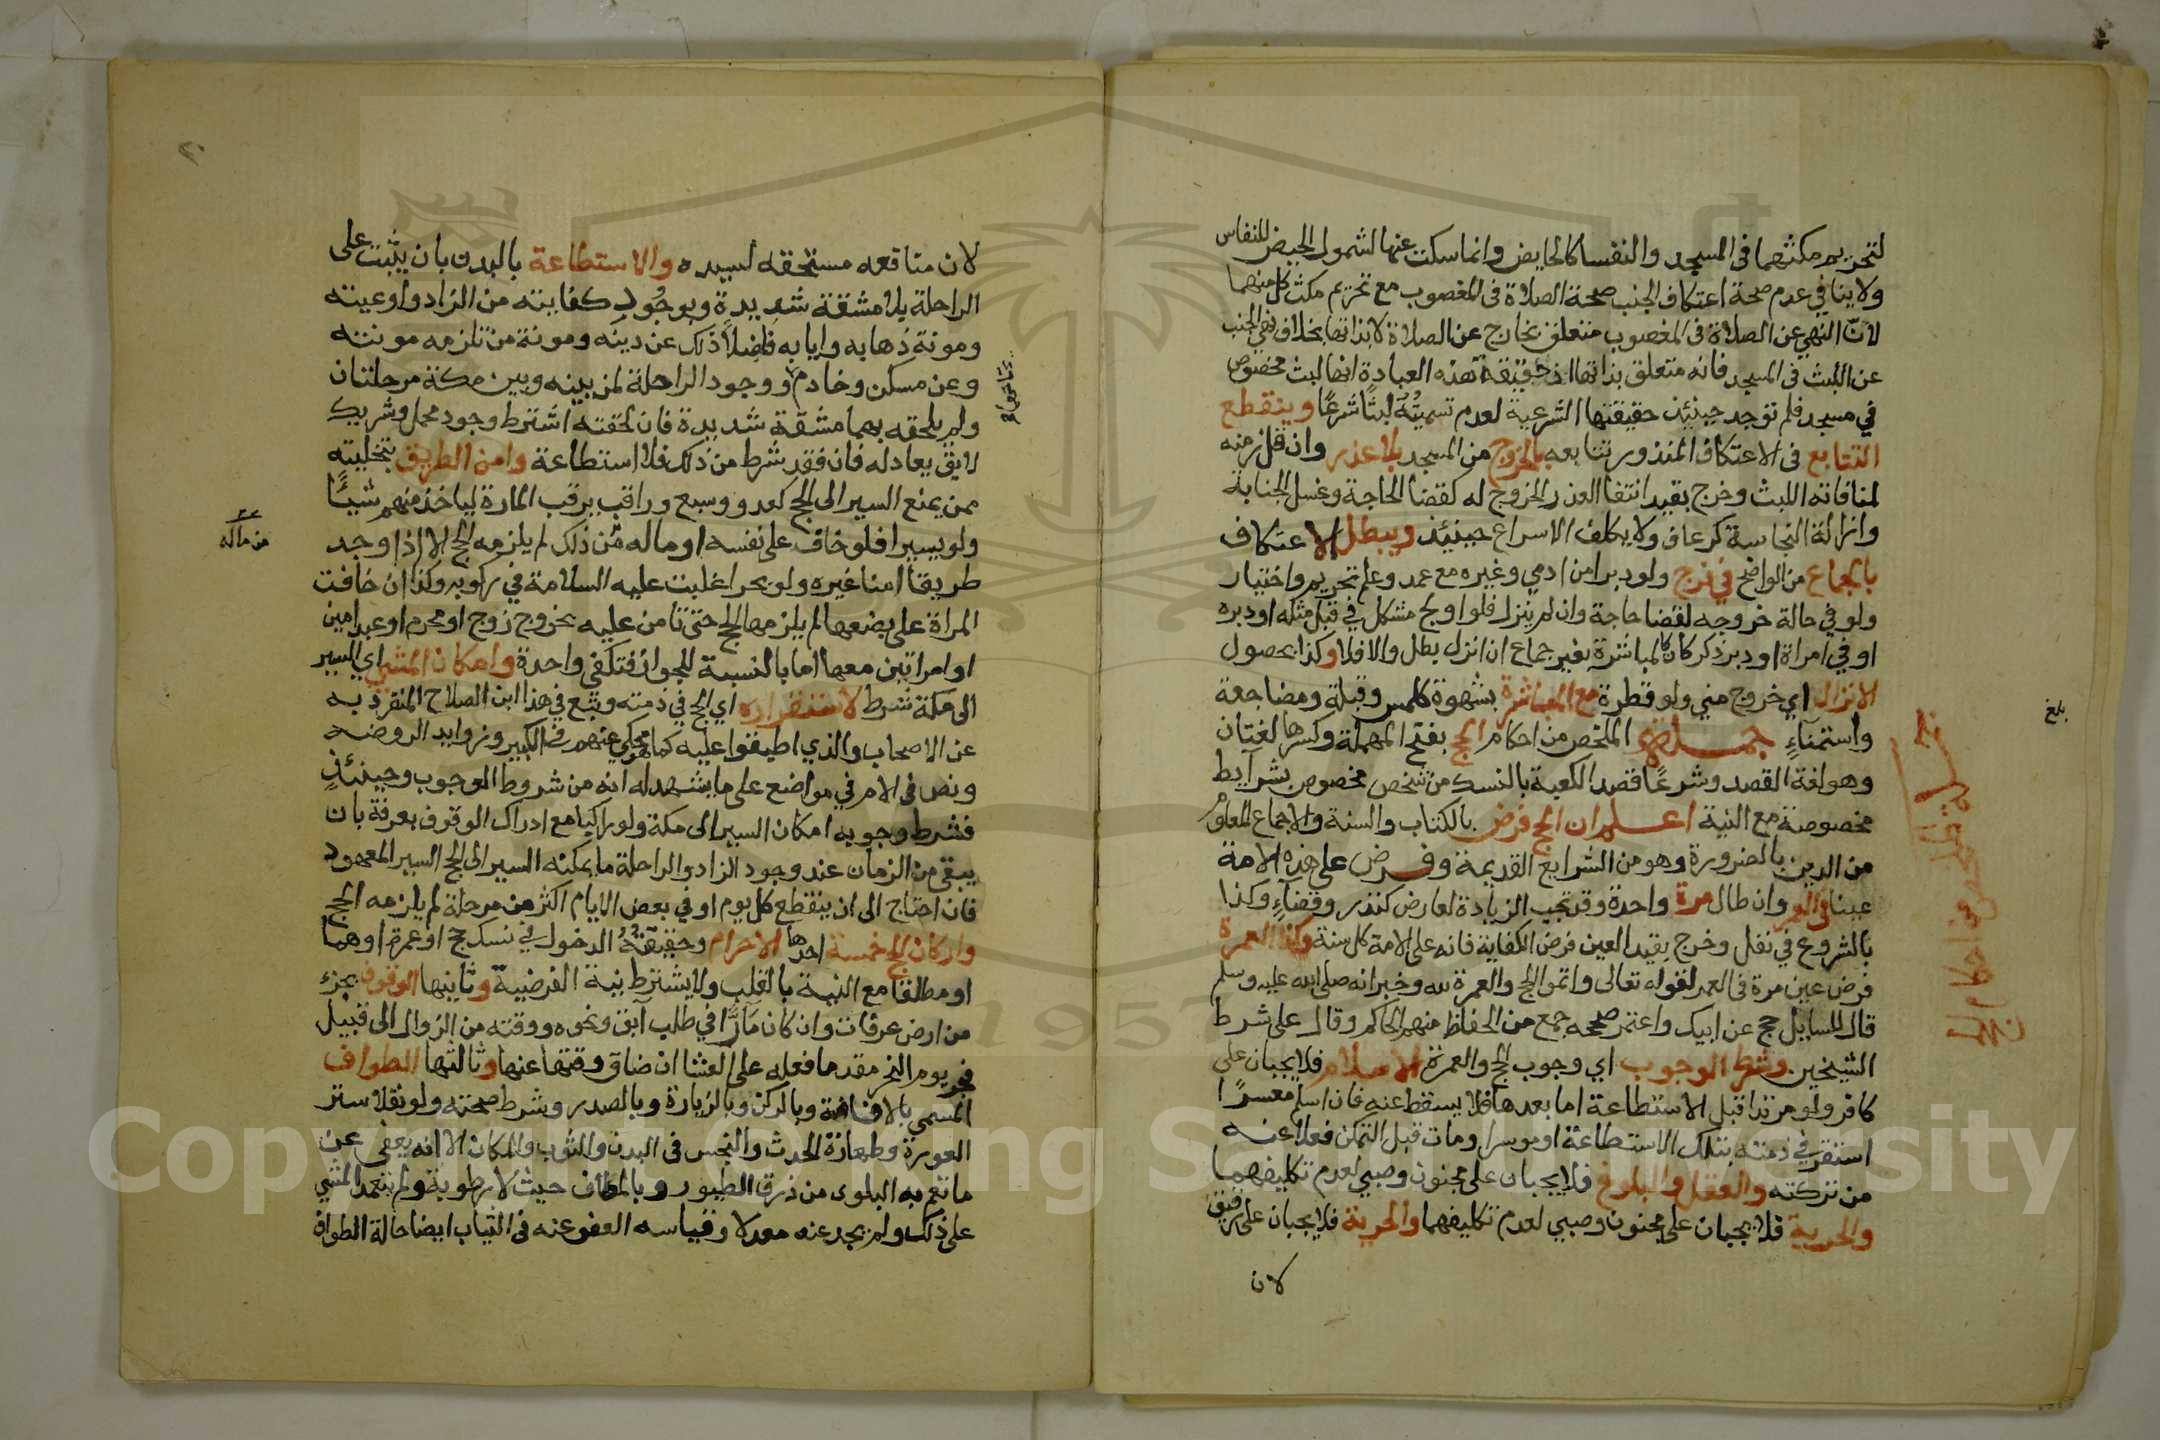 لتحريم مكثهما في المسجد والنفسا كالحايض وانما سكت عنها لشمول الحيض للنفاس
ولا ينافي عدم صحة اعتكاف الجنب صحة الصلاة في المغصوب مع تحريم مكث كل منهما
لانّ النهي عن الصلاة في المغصوب متعلق بخارج عن الصلاة لا بذاتها بخلاف نهي الجنب
عن اللبث في المسجد فانه متعلق بذاتها اذ حقيقة هذه العبادة انها لبث مخصوص
في مسجد فلم توجد حينئذ حقيقتها الشرعية لعدم تسميته لبثًا شرعًا وينقطع
التتابع في الاعتكاف المنذور تتابعه بالخروج من المسجد بلا عذر وان قل زمنه
لمنافاته اللبث وخرج بقيد انتفا العذر الخروج له كقضا الحاجة وغسل الجنابة
وازالة النجاسة كرعاف ولا يكلف الاسراع حينئذ ويبطل الاعتكاف
بالجماع من الواضح في فرج ولو دبرا من ادمي وغيره مع عمد وعلم تحريم واختيار
ولو في حالة خروجه لقضا حاجة وان لم ينزل فلو اولج مشكل في قبل مثله او دبره
او في امراة او دبر ذكر كان كالمباشرة بغير جماع ان انزل بطل والا فلا وكذا بحصول
الانزال اي خروج مني ولو قطرة مع المباشرة بشهوة كلمس وقبلة ومضاجعة
واستمناءٍ الملخص من احكام الحج بفتح المهملة وكسرها لغتان
وهو لغة القصد وشرعًا قصد الكعبة بالنسك من شخص مخصوص بشرايط
مخصوصة مع النية اعلم ان الحج فرض بالكتاب والسنة والاجماع المعلوم
من الدين بالضرورة وهو من الشرايع القديمة وفرض على هذه الامة
عينا وان طال مرة واحدة وقد تجب الزيادة لعارض كنذر وقضاءٍ وكذا
بالشروع في نفل وخرج بقيد العين فرض الكفاية فانه على الامة كل سنة وكذا العمرة
فرض عين مرة في العمر لقوله تعالى واتموا الحج والعمرة لله وخبر انه صلى الله عليه وسلم
قال للسايل حج عن ابيك واعتمر صححه جمع من الحفاظ منهم الحاكم وقال على شرط
الشيخين وشرط الوجوب اي وجوب الحج والعمرة الاسلام فلا يجبان على
كافر ولو مرتدا قبل الاستطاعة اما بعدها فلا يسقط عنه فان اسلم معسرًا
استقر في ذمته بتلك الاستطاعة او موسرا ومات قبل التمكن فعلا عنه
من تركته والعقل والبلوغ فلا يجبان على مجنون وصبي لعدم تكليفهما
والحرية فلا يجبان على مجنون وصبي لعدم تكليفهما والحرية فلا يجبان على رقيق
لان
الملخص من احكام الحج
بلغ
لان منافعه مستحقه لسيده والاستطاعة بالبدن بان يثبت على
الراحلة بلا مشقة شديدة وبوجود كفايته من الزاد واوعيته
ومونة ذهابه وايابه فاضلاً ذلك عن دينه ومونة من تلزمه مونته
وعن مسكن وخادم ووجود الراحلة لمن بينه وبين مكة مرحلتان
ولم يلحقه بهما مشقة شديدة فان لحقته اشترط وجود محمل وشريك
لايق يعادله فان فقد شرط من ذلك فلا استطاعة وامن الطريق بتخليته
ممن يمنع السير الى الحج كعدو وسبع وراقب يرقب المارة لياخذ منهم شيئًا
ولو يسيرا فلو خاف على نفسه او ماله من ذلك لم يلزمه الحج الا اذا وجد
طريقا امنا غيره ولو بحرا غلبت عليه السلامة في ركوبه وكذا ان خافت
المراة على بضعها لم يلزمها الحج حتى تامن عليه بخروج زوج او محرم او عبد امين
او امراتين معها اما بالنسبة للجواز فتكفي واحدة وامكان المشي اي السير
الى مكة شرط لاستقراره اي الحج في ذمته وتبع في هذا ابن الصلاح المتفرد به
عن الاصحاب والذي اطبقوا عليه كما هو محكي عنهم في الكبير وزوايد الروضة
ونص في الام في مواضع على ما يشهد له انه من شروط الوجوب وحينئذٍ
فشرط وجوبه امكان السير الى مكة ولو راكبا مع ادراك الوقوف بعرفة بان
يبقى من الزمان عند وجود الزاد والراحلة ما يمكنه السير الى الحج السير المعهود
فان احتاج الى ان ينقطع كل يوم او في بعض الايام اكثر من مرحلة لم يلزمه الحج
واركان الحج خمسة احدها الاحرام وحقيقته الدخول في نسك حج او عمرة او هما
او مطلقا مع النية بالقلب ولا يشترط نية الفرضية وثانيها الوقوف بجزء
من ارض عرفات وان كان مارًّا في طلب آبق ونحوه ووقته من الزوال الى قبيل
فجر يوم النحر مقدما فعله على العشا ان ضاق وقتها عنها وثالثها الطواف
المسمى بالافاضة وبالركن وبالزيارة وبالصدر وشرط صحته ولو نفلا ستر
العورة وطهارة الحدث والنجس في البدن والثوب والمكان الا انه يعفى عن
ما تعم به البلوى من ذرق الطيور وبالمطاف حيث لا رطوبة ولم يتعمد المشي
على ذلك ولم يجد عنه معدلا وقياسه العفو عنه في الثياب ايضا حالة الطواف
من ماله
٢٠
Copyright © King Saud University
1957